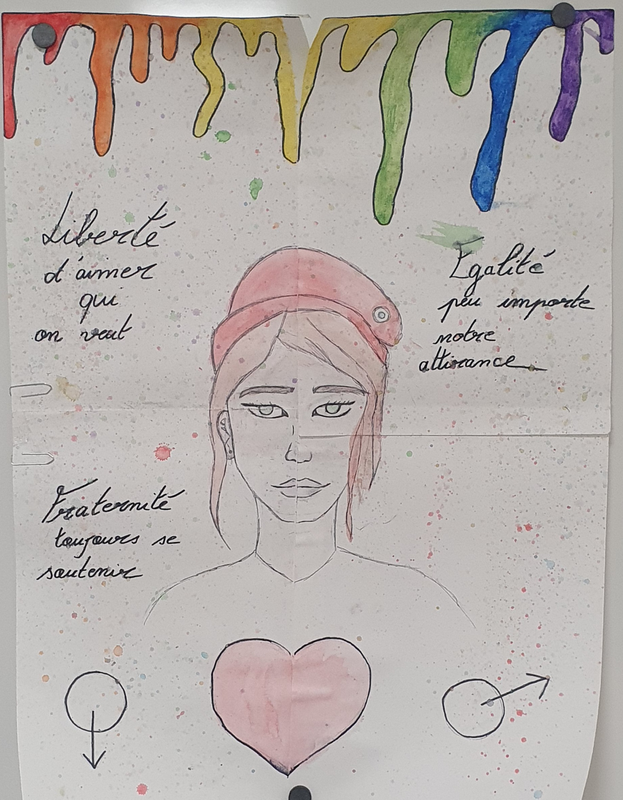 Liberté
d'aimer
qui
on veut
Egalité
peu importe
notre
attirance
Fraternité
toujours se
soutenir